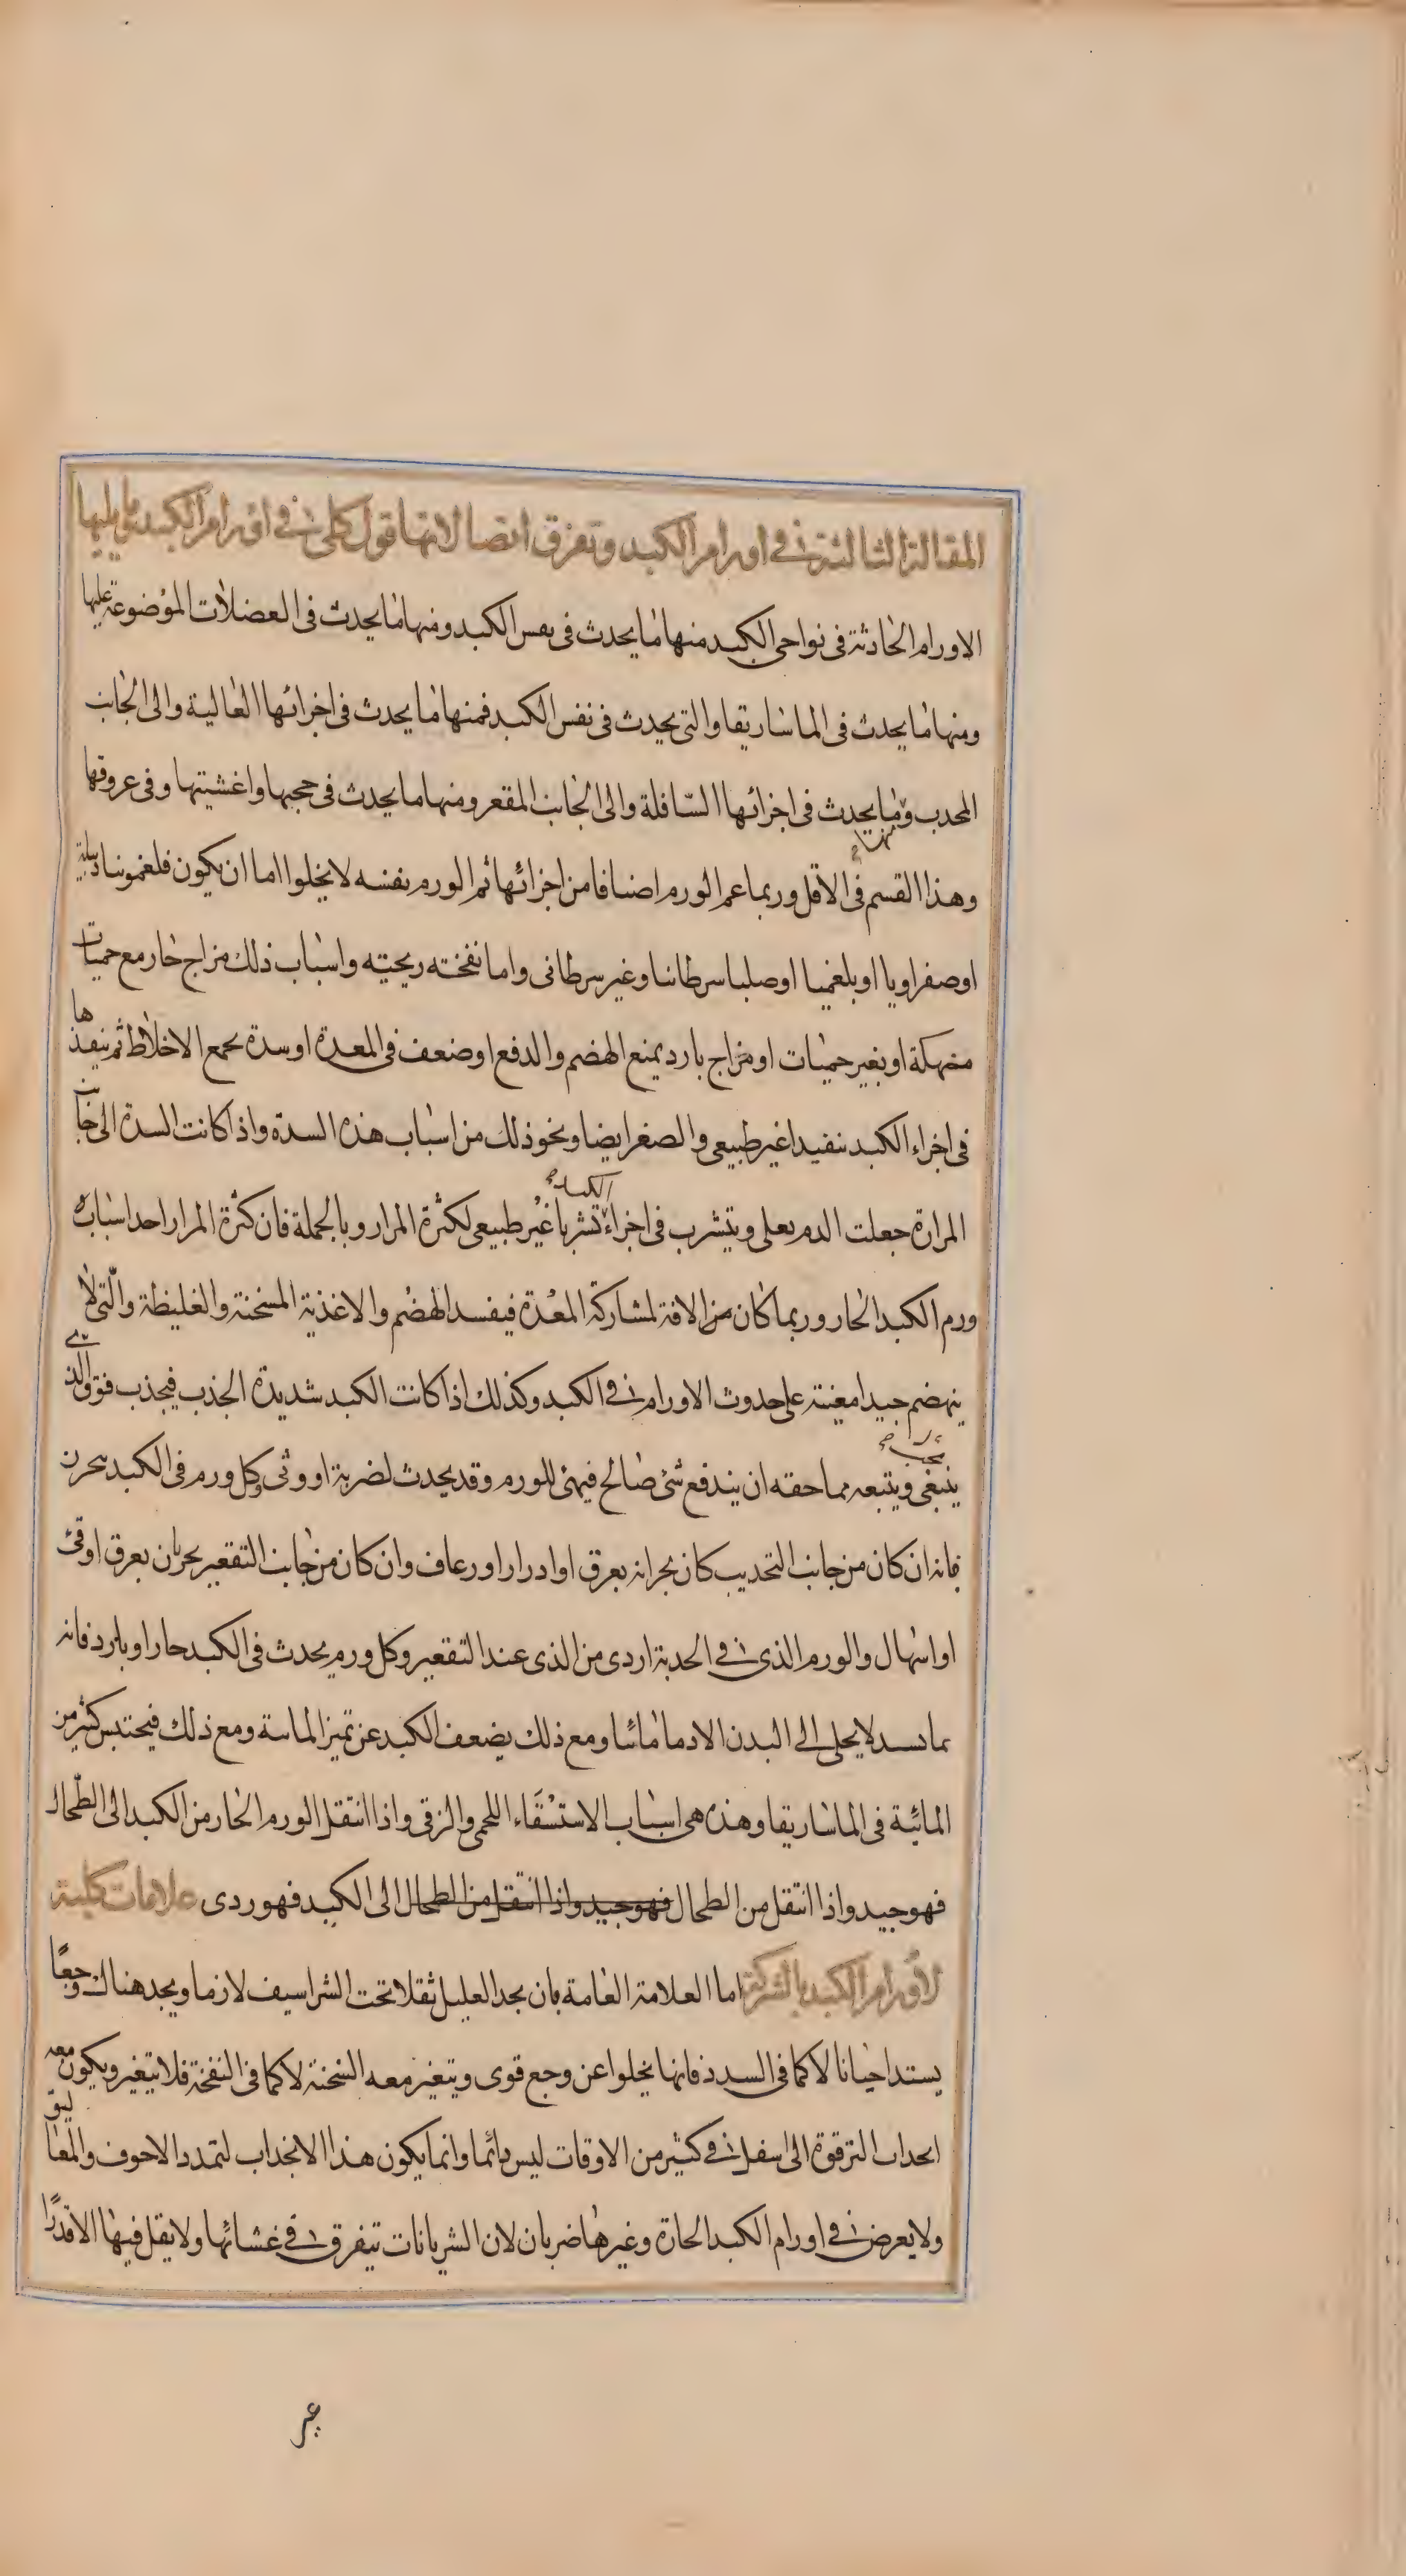 المقالة الثالثة في اورام الكبد وتفرق اتصالاتها قول كلي في اورام الكبد وما يليها
الاورام الحادثة فى نواحى الكبد منها ما يحدث فى نفس الكبد ومنها ما يحدث فى العضلات الموضوعة عليها
ومنها ما يحدث فى الماساريقا والتى يحدث فى نفس الكبد فمنها ما يحدث فى اجزائها العالية والى الجانب
المحدب ومنها ما يحدث فى اجزائها السافلة والى الجانب المقعر ومنها ما يحدث فى حجبها واغشيتها وفى عروقها
وهذا القسم فى الاقل وربما عم الورم اصنافا من اجزائها ثم الورم بنفسه لا يخلوا اما ان يكون فلغمونيا
اوصفراويا او بلغميا اوصلبا سرطانيا وغير سرطانى واما نفخته ريحيته واسباب ذلك مزاج حار مع حميات
منهكة او بغير حميات او مزاج بارد يمنع الهضم والدفع اوضعف فى المعدة اوسدة يجمع الاخلاط ثم ينفذها
فى اجزاء الكبد تنفيدا غير طبيعى والصغر ايضا ونحو ذلك من اسباب هذه السدة واذا كانت السدة الى جانب
المرارة جعلت الدم يعلى ويتشرب فى اجزاء الكبد تشربا غير طبيعى لكثرة المرار وبالجملة فان كثرة المرار احد اسبابه
ورم الكبد الحار وربما كان من الافة لمشاركة المعدة فيفسد الهضم والاغذية المسخنة والغليظة والتى لا
ينهضم جيدا معينة على حدوث الاورام في الكبد وكذلك اذا كانت الكبد شديدة الجذب فيجذب فوق الذى
ينبغى ويتبعه مما حقه ان يندفع شئ صالح فيهئ للورم وقد يحدث لضربة او وثى وكل ورم فى الكبد بحران
فانه ان كان من جانب التحديب كان بحرانه بعرق او ادرار او رعاف وان كان من جانب التقعير بحران بعرق اوقئ
او اسهال والورم الذى في الحدبة اردى من الذى عند التقعير وكل ورم يحدث فى الكبد حار او بارد فانه
بما يسد لا يحلى الى البدن الا دما مائيا ومع ذلك يضعف الكبد عن تميز المائية ومع ذلك فيحتبس كثير من
المائية فى الماساريقا وهذه هى اسباب الاستسقاء اللحمى والزقى واذا انتقل الورم الحار من الكبد الى الطحال
فهو جيد واذا انتقل من الطحال فهو جيد واذا انتقل من الطحال الى الكبد فهو ردى علامات كلية
لاورام الكبد بالشركة اما العلامة العامة بان يجد العليل ثقلا تحت الشراسيف لازما ويجد هناك وجعا
يستد احيانا لا كما فى السدد فانها يخلوا عن وجع قوى ويتغير معه السخنة لا كما فى النفخة فلا يتغير ويكون معه
انجذاب الترقوة الى اسفل في كثير من الاوقات ليس دائما وانما يكون هذا الانجذاب لتمدد الاجوف والمعاليق
ولا يعرض في اورام الكبد الحارة وغيرها ضربان لان الشريانات يتفرق في غشائها ولا يقل فيها الا قدرا